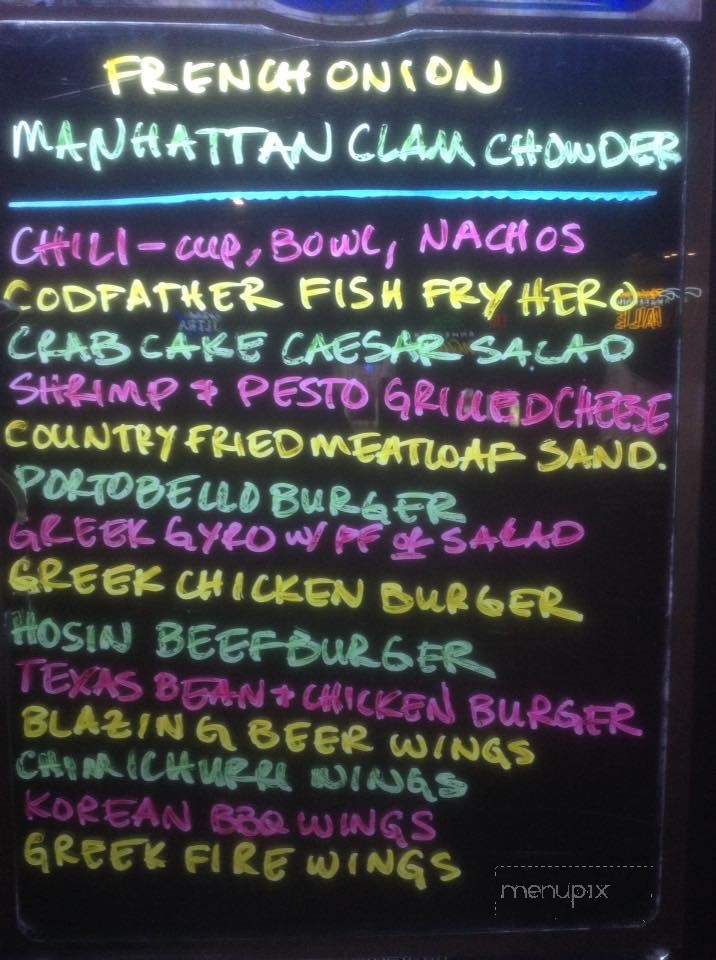 FRENCH ONION
MANHATTAN CLAM CHOWDER
CHILI - CUP, BOWL, NACHOS
CODFATHER FISH FRY HERO
CRAB CAKE CAESAR SALAD
SHRIMP & PESTO GRILLED CHEESE
COUNTRY FRIED MEATLOAF SAND.
PORTOBELLO BURGER
GREEK GYRO W/ FF OR SALAD
GREEK CHICKEN BURGER
HOSIN BEEF BURGER
TEXAS BEAN & CHICKEN BURGER
BLAZING BEER WINGS
CHIMICHURRI WINGS
KOREAN BBQ WINGS
GREEK FIRE WINGS
menupix